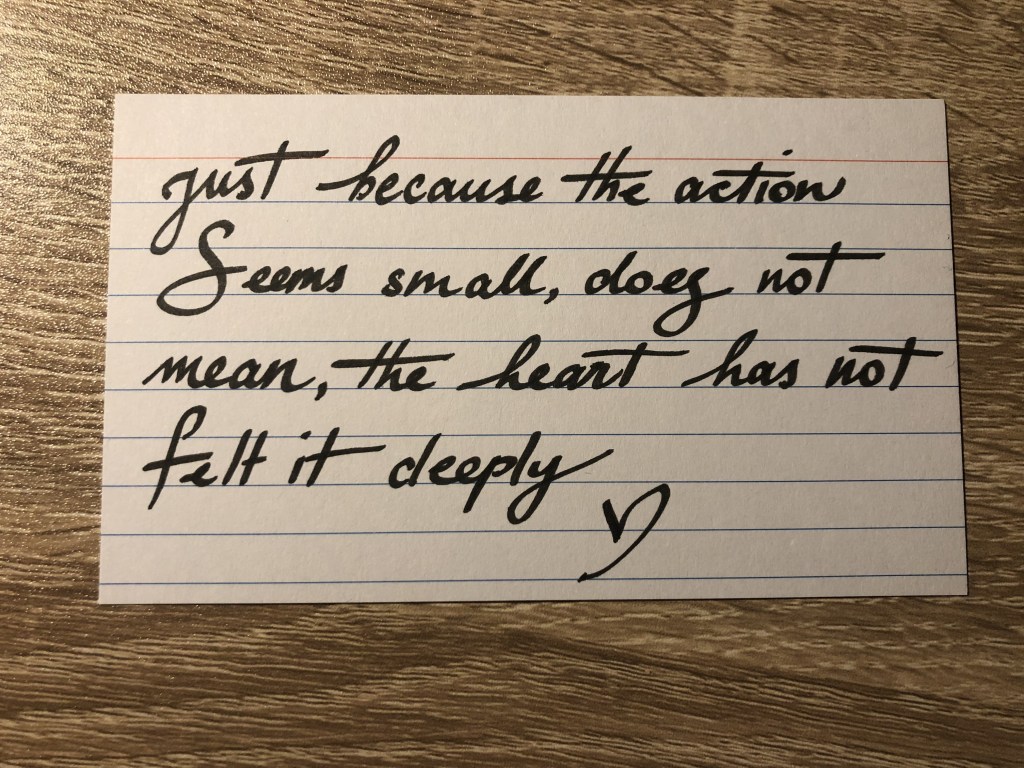 just because the action
Seems small, does not
mean, the heart has not
felt it deeply